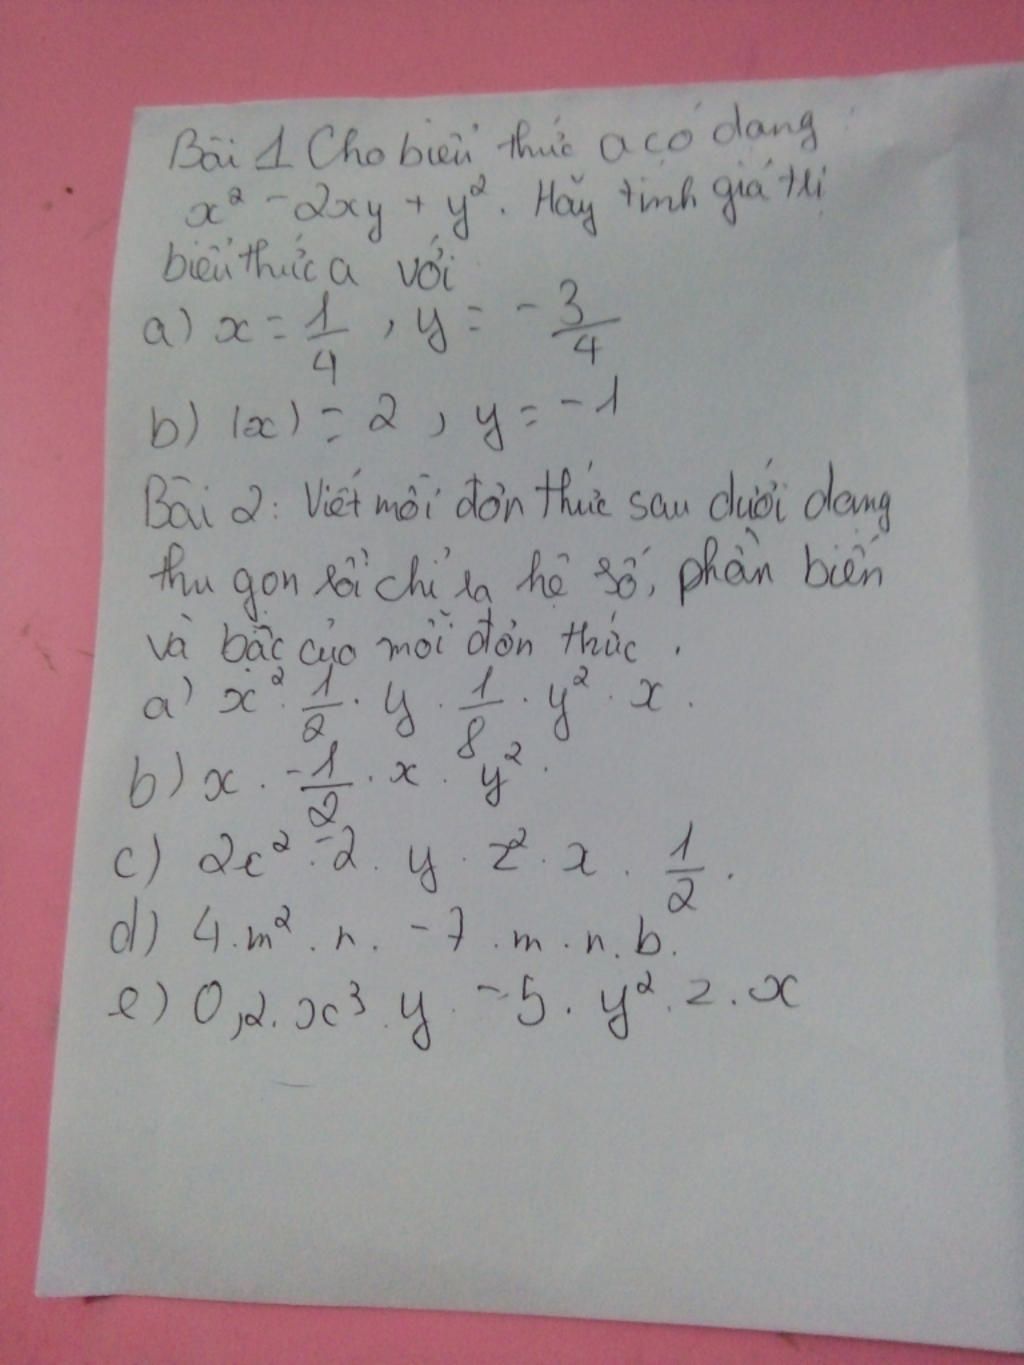 Bài 1 Cho biểu thức a có dạng
x² - 2xy + y². Hãy tính giá trị
biểu thức a với
a) x = 1/4, y = -3/4
b) |x| = 2, y = -1
Bài 2: Viết mỗi đơn thức sau dưới dạng
thu gọn rồi chỉ ra hệ số, phần biến
và bậc của mỗi đơn thức.
a) x² . 1/2 . y . 1/8 . y² . x .
b) x . -1/2 . x . y² .
c) 2x² . -2 . y . z² . x . 1/2 .
d) 4 . m² . n . -7 . m . n . b .
e) 0,2 . x³ . y . -5 . y² . z . x